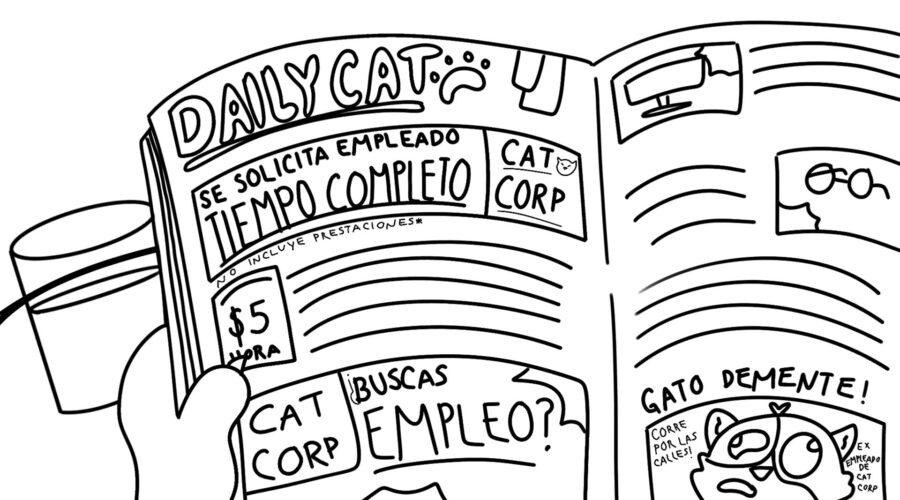 DAILY CAT
SE SOLICITA EMPLEADO
TIEMPO COMPLETO
NO INCLUYE PRESTACIONES*
CAT
CORP
$5
HORA
CAT
CORP
¿BUSCAS
EMPLEO?
GATO DEMENTE!
CORRE
POR LAS
CALLES!
EX
EMPLEADO
DE
CAT
CORP